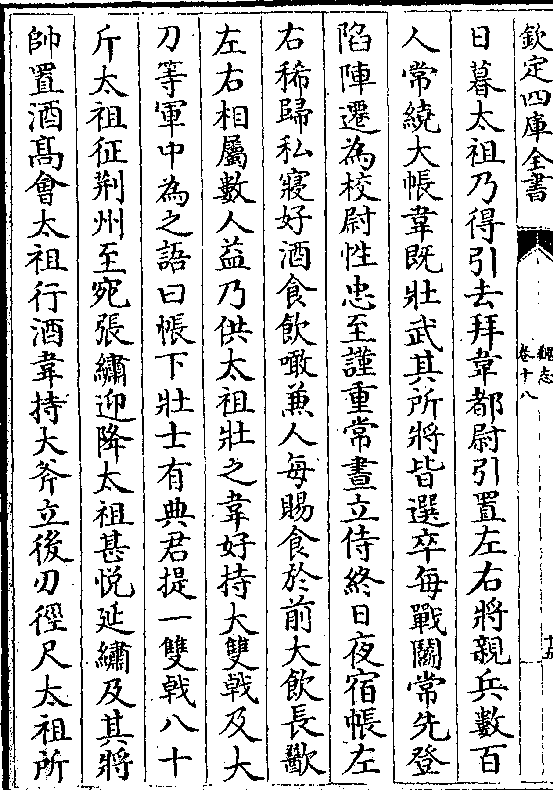 欽定四庫全書
魏志
卷十八
日暮太祖乃得引去拜韋都尉引置左右將親兵數百
人常繞大帳韋既壯武其所將皆選卒每戰鬭常先登
陷陣遷為校尉性忠至謹重常晝立侍終日夜宿帳左
右稀歸私寢好酒食飲噉兼人每賜食於前大飲長歠
左右相屬數人益乃供太祖壯之韋好持大雙戟及大
刀等軍中為之語曰帳下壯士有典君提一雙戟八十
斤太祖征荆州至宛張繡迎降太祖甚悦延繡及其將
帥置酒髙會太祖行酒韋持大斧立後刃徑尺太祖所